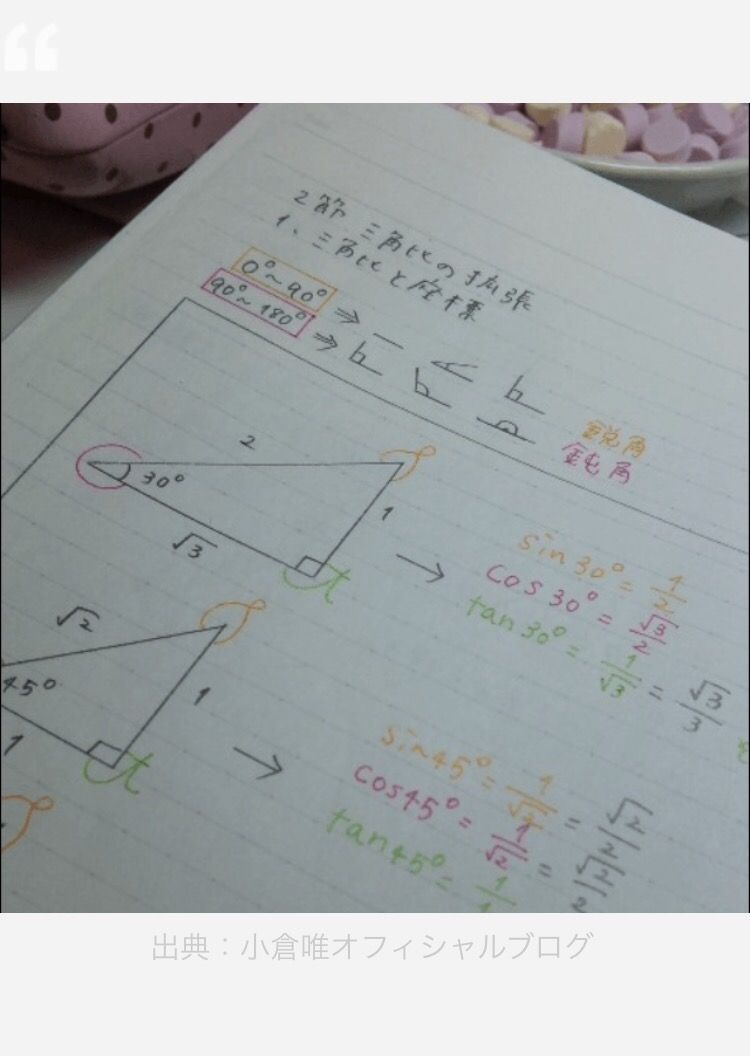 2節 三角比の拡張
1、三角比と座標
0°~90° ⇒
90°~180° ⇒
鋭角
鈍角
2
30°
1
√3
→
sin30° = 1/2
cos30° = √3/2
tan30° = 1/√3 = √3/3
√2
45°
1
1
→
sin45° = 1/√2 = √2/2
cos45° = 1/√2 = √2/2
tan45° = 1/1
出典：小倉唯オフィシャルブログ